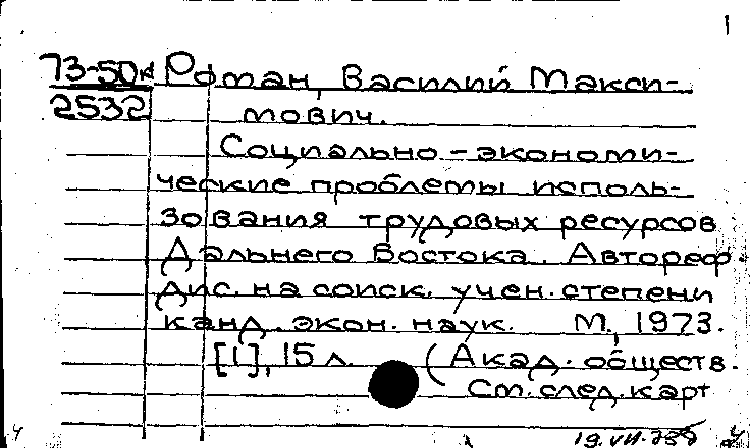 1
73-50к Роман, Василий Макси-
2532 мович.
Социально-экономи-
ческие проблемы исполь-
зования трудовых ресурсов
Дальнего Востока. Автореф.
дис. на соиск. учен. степени
канд. экон. наук. М., 1973.
[1], 15 л. (Акад. обществ.
См. след. карт